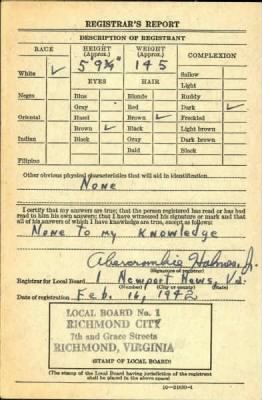 REGISTRAR'S REPORT
DESCRIPTION OF REGISTRANT
RACE HEIGHT (Approx.) WEIGHT (Approx.) COMPLEXION
5 9¾" 145
White ✓ Sallow
EYES HAIR Light
Negro Blue Blonde Ruddy
Gray Red Dark ✓
Oriental Hazel Brown ✓ Freckled
Brown ✓ Black Light brown
Indian Black Gray Dark brown
Bald Black
Filipino
Other obvious physical characteristics that will aid in identification
None
I certify that my answers are true; that the person registered has read or has had
read to him his own answers; that I have witnessed his signature or mark and that
all of his answers of which I have knowledge are true, except as follows:
None to my knowledge
Abercrombie Holmes, Jr.
(Signature of registrar)
Registrar for Local Board 1 Newport News, Va.
Date of registration Feb. 16, 1942
LOCAL BOARD No. 1
RICHMOND CITY
7th and Grace Streets
RICHMOND, VIRGINIA
(STAMP OF LOCAL BOARD)
(The stamp of the Local Board having jurisdiction of the registrant
shall be placed in the above space)